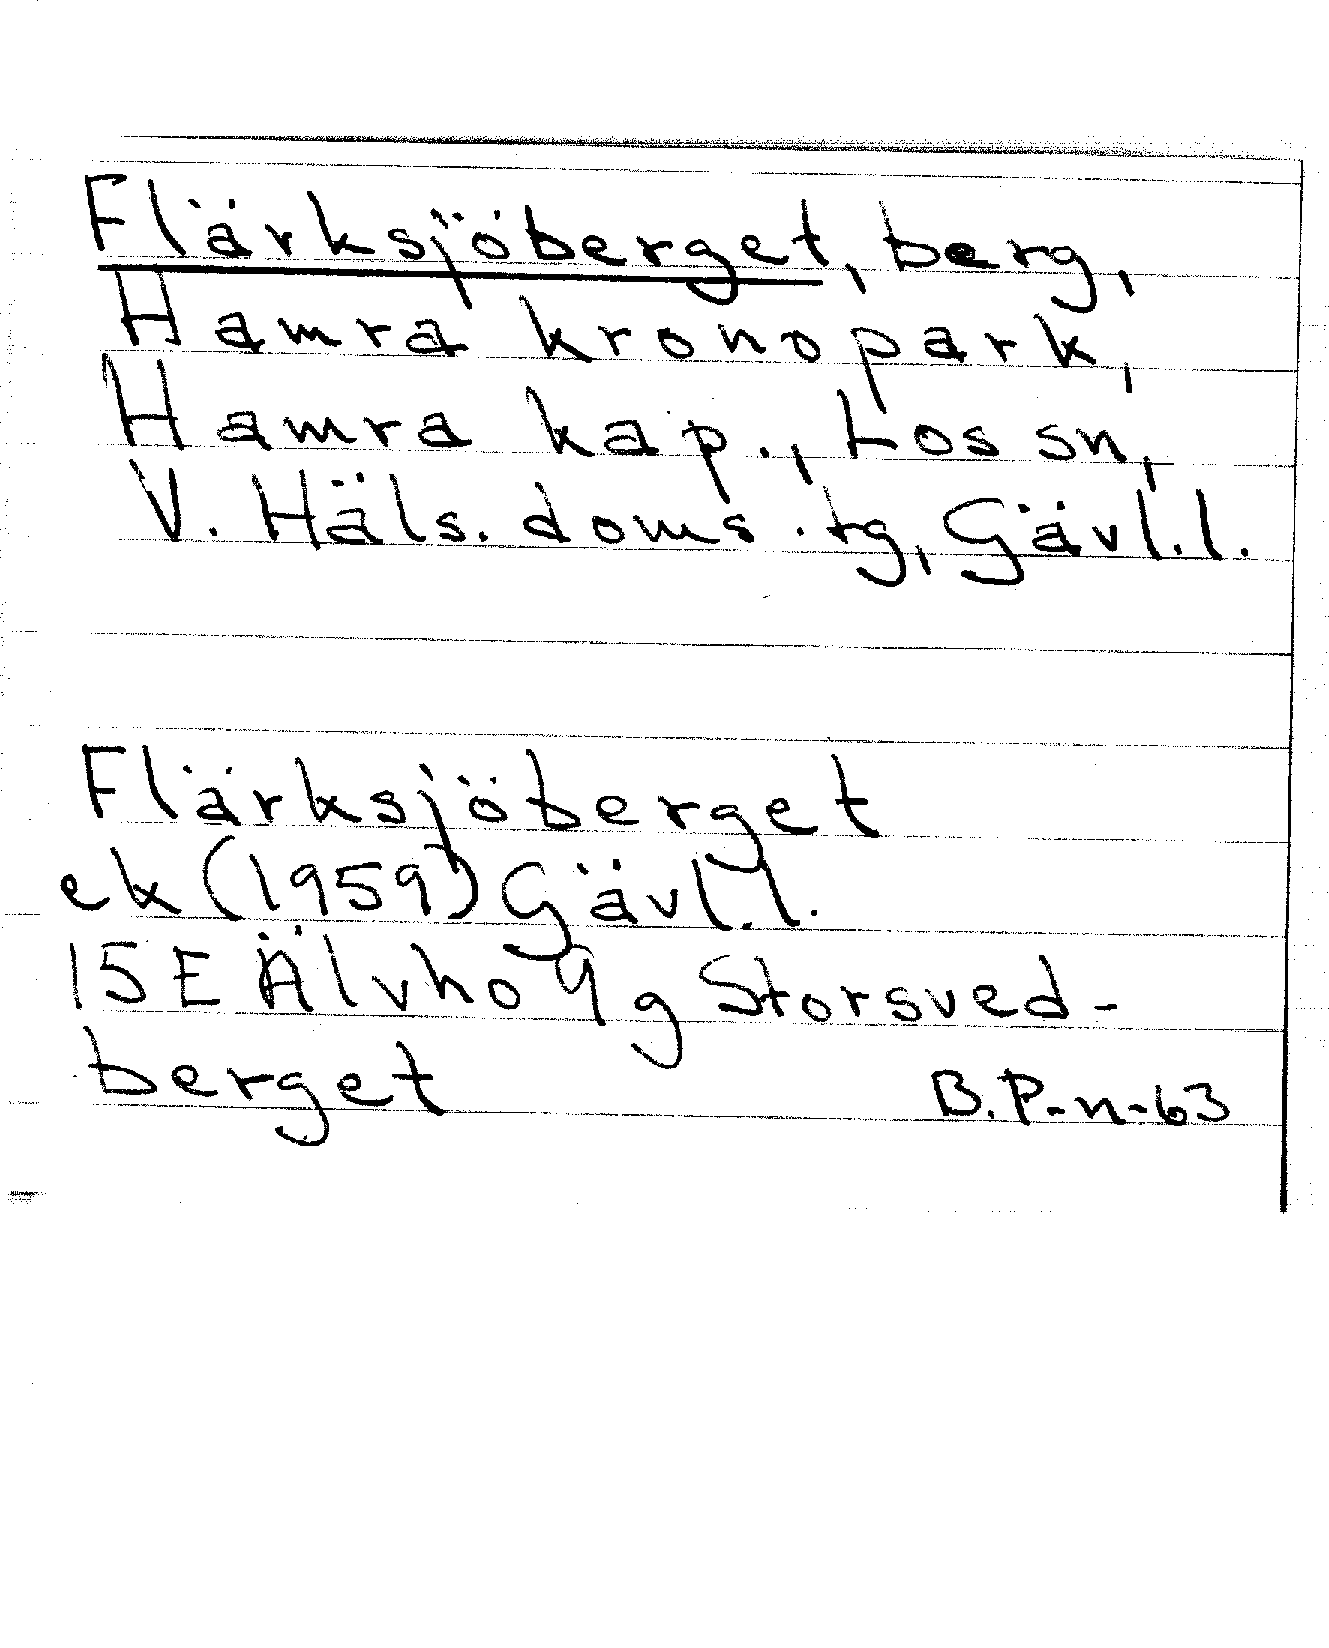 Flärksjöberget, berg,
Hamra kronopark,
Hamra kap., Los sn,
V. Häls. doms. tg, Gävl. l.
Flärksjöberget
ek (1959) Gävl. l.
15 E Älvho 9 g Storsved-
berget B.P-n-63